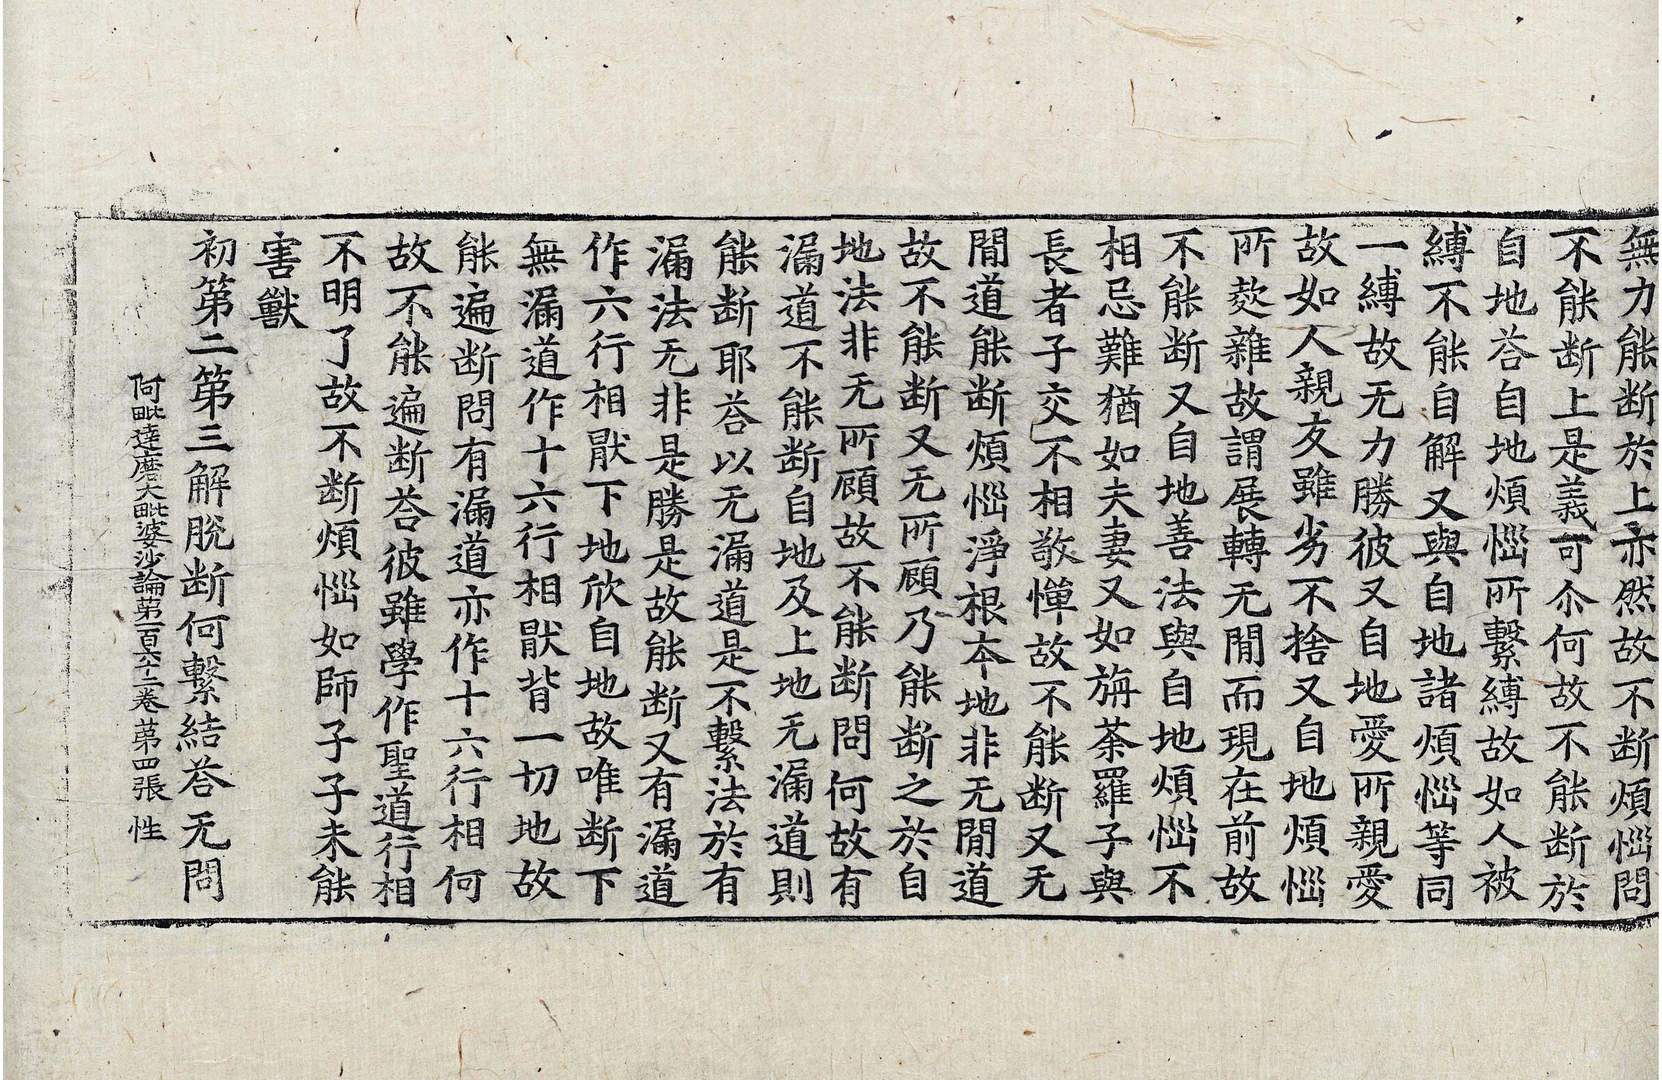 無力能断於上亦然故不断煩惱問
不能断上是義可尒何故不能断於
自地荅自地煩惱所繫縛故如人被
縛不能自解又與自地諸煩惱等同
一縛故无力勝彼又自地愛所親愛
故如人親友雖劣不捨又自地煩惱
所㱿雜故謂展轉无閒而現在前故
不能断又自地善法與自地煩惱不
相忌難猶如夫妻又如旃荼羅子與
長者子交不相敬憚故不能断又无
閒道能断煩惱淨根夲地非无閒道
故不能断又无所顧乃能断之於自
地法非无所顧故不能断問何故有
漏道不能断自地及上地无漏道則
能断耶荅以无漏道是不繫法於有
漏法无非是勝是故能断又有漏道
作六行相猒下地欣自地故唯断下
無漏道作十六行相猒背一切地故
能遍断問有漏道亦作十六行相何
故不能遍断荅彼雖學作聖道行相
不明了故不断煩惱如師子子未能
害獸
初第二第三解脱断何繫結荅无問
阿毗達磨大毗婆沙論第一百六十二卷 第四張 性